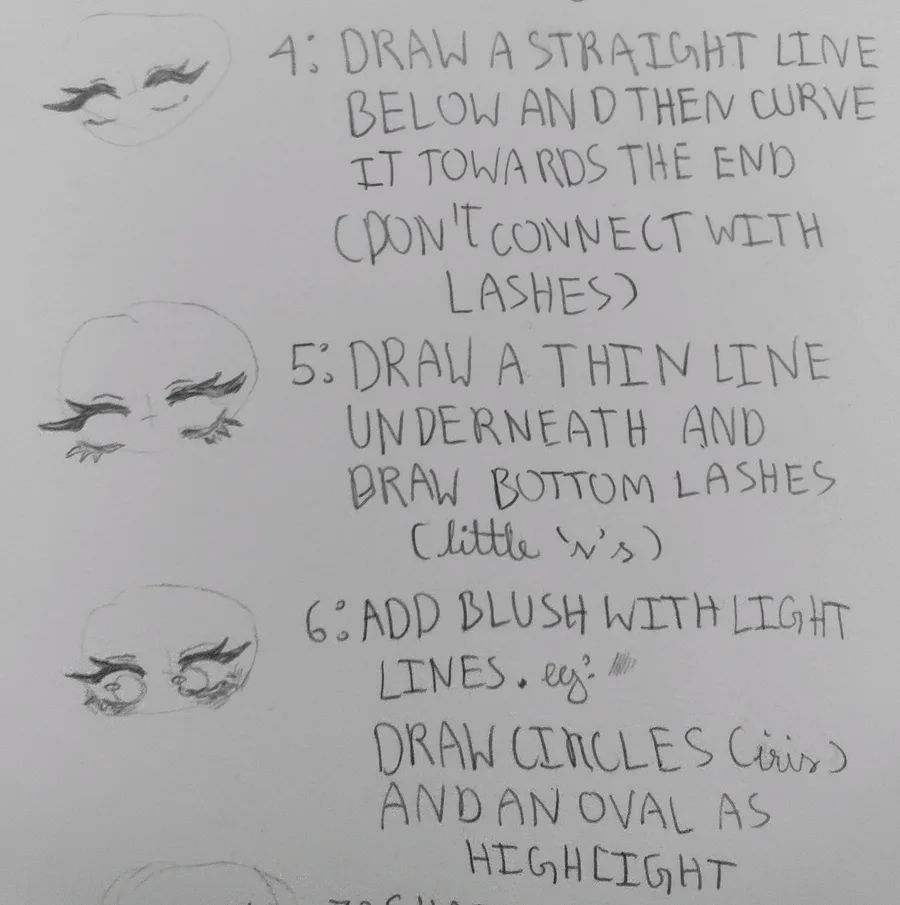 4: DRAW A STRAIGHT LINE
BELOW AND THEN CURVE
IT TOWARDS THE END
(DON'T CONNECT WITH
LASHES)
5: DRAW A THIN LINE
UNDERNEATH AND
DRAW BOTTOM LASHES
(little 'v's)
6: ADD BLUSH WITH LIGHT
LINES. eg:
DRAW CIRCLES (iris)
AND AN OVAL AS
HIGHLIGHT